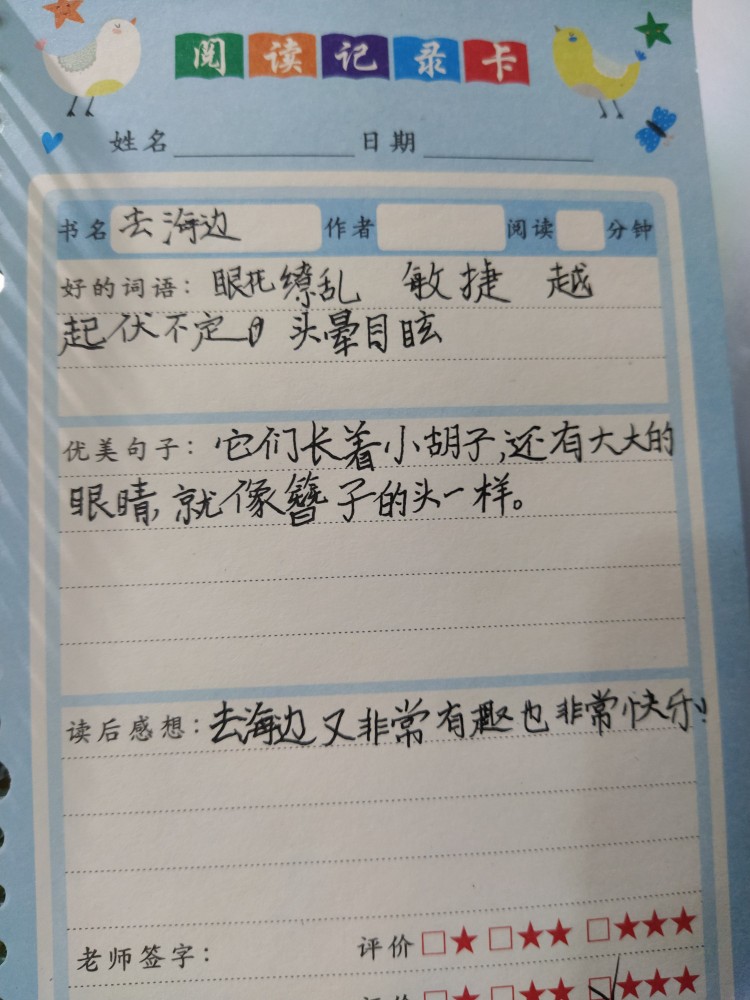 阅读记录卡
姓名 日期
书名 去海边 作者 阅读 分钟
好的词语: 眼花缭乱 敏捷 越
起伏不定 头晕目眩
优美句子: 它们长着小胡子,还有大大的
眼睛,就像簪子的头一样。
读后感想: 去海边又非常有趣也非常快乐!
老师签字: 评价 □★ □★★ □★★★
评价 □★ □★★ ☑★★★